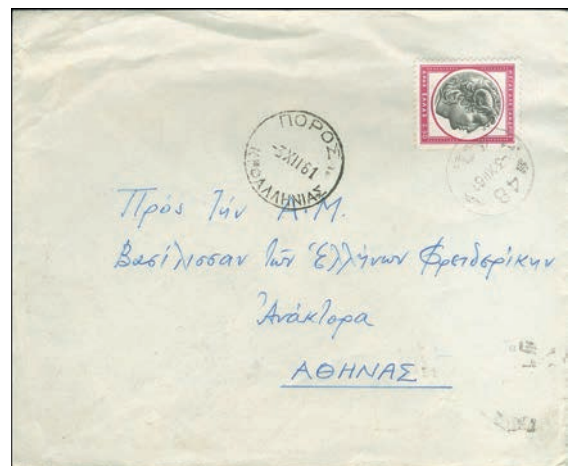 ΠΟΡΟΣ
-3 XII 61
ΚΕΦΑΛΛΗΝΙΑΣ
48
-3 XII 61
Πρός τήν Α.Μ.
Βασίλισσαν τῶν Ἑλλήνων Φρειδερίκην
Ἀνάκτορα
ΑΘΗΝΑΣ